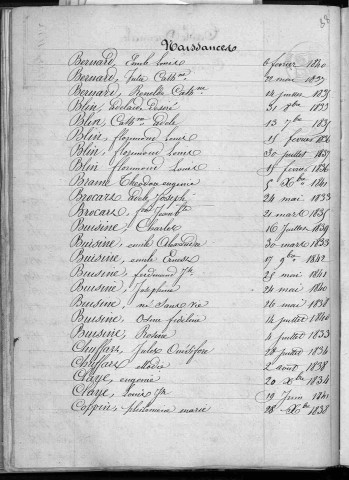 Naissances
Bernard, Emile Louis 6 février 1840
Bernard, Jules Cath.ne 12 mai 1837
Bernard, Cath.ne 14 juillet 1835
Blin, Adelaïde 31 8bre 1833
Blin, Cath.ne Adele 13 7bre 1835
Blin, florimond Louis 15 février 1836
Blin, florimond Louis 30 juillet 1837
Blin, florimond Louis 15 février 1836
Brame Théodore eugenie 5 Xbre 1841
Brocars, Joseph 24 mai 1833
Brocars, 21 mars 1835
Buisine, Charles 16 juillet 1839
Buisine, emile 30 mars 1833
Buisine, emile Ernest 17 9bre 1842
Buisine, ferdinand Jh 25 mai 1841
Buisine, Josephine 24 mai 1840
Buisine, né sans vie 26 mai 1838
Buisine, fidéline 14 juillet 1840
Buisine, Rosine 4 juillet 1833
Chuffart, Jules Onésifore 28 juillet 1834
Chuffart, 2 août 1838
Claye, eugenie 20 Xbre 1834
Claye, Louis Jh 19 juin 1841
Coppin, philomene marie 28 Xbre 1838